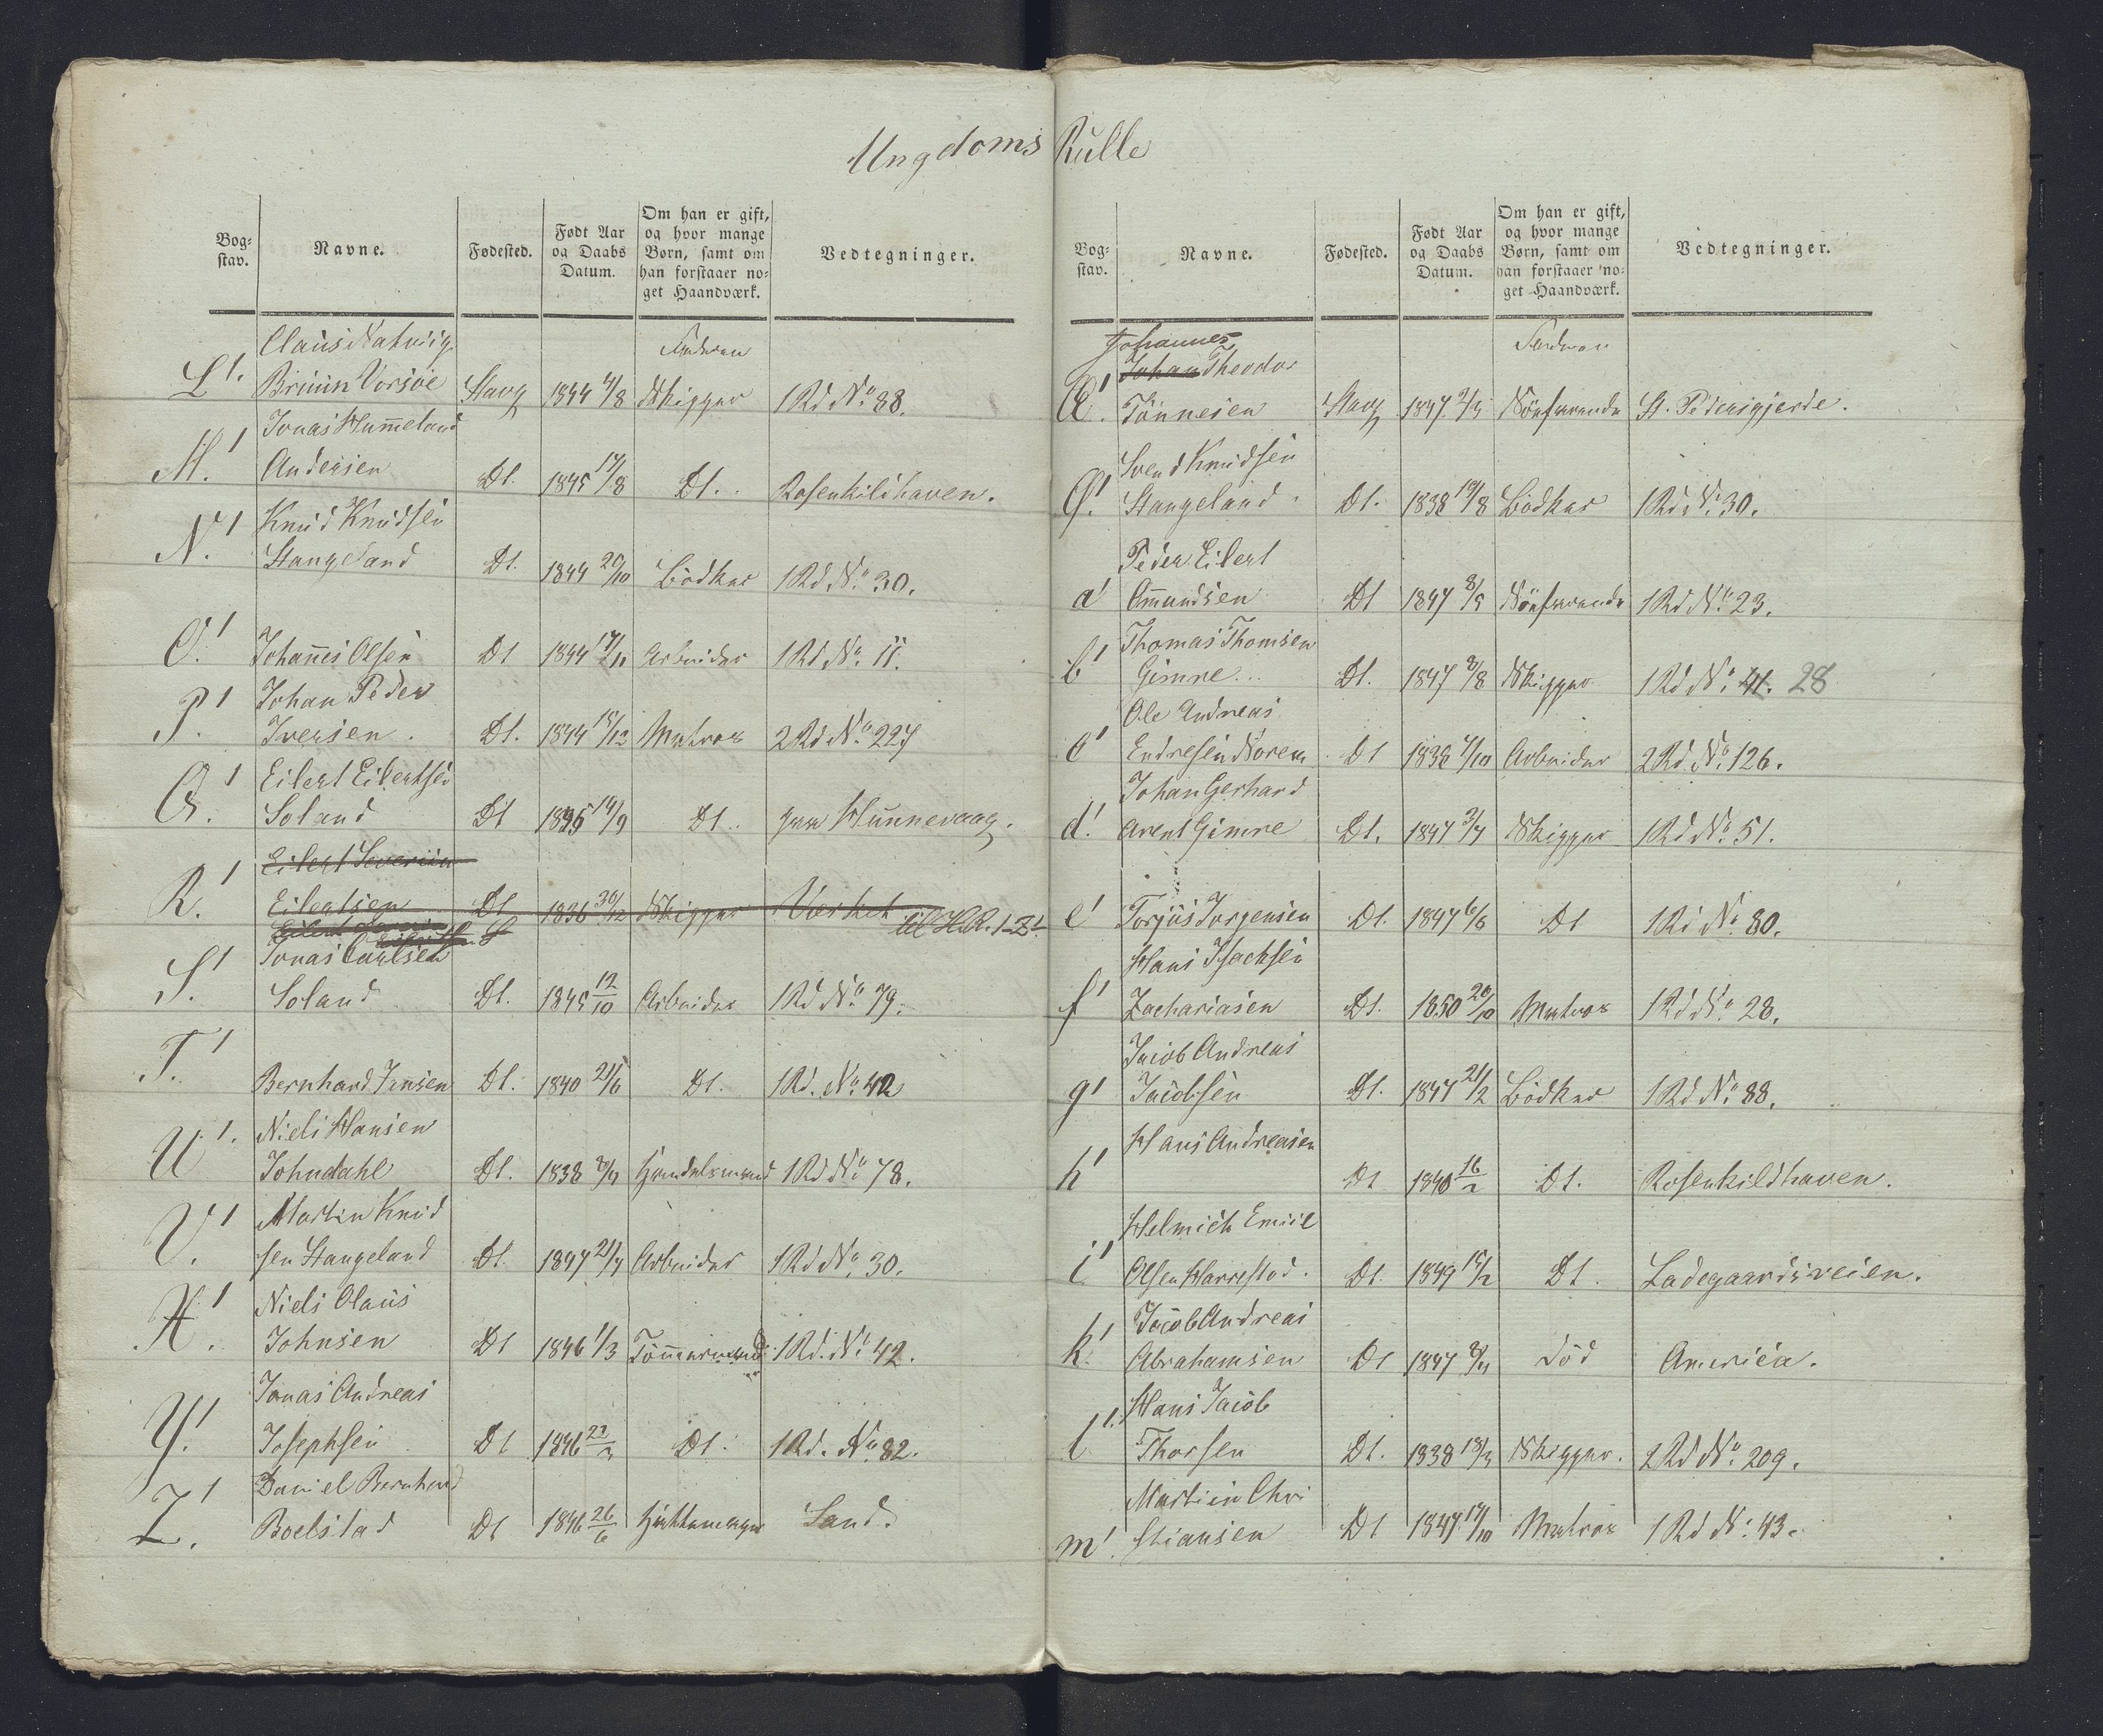 Ungdoms Rulle
Bog-
stav.
Navne.
Fødested.
Født Aar
og Daabs
Datum.
Om han er gift,
og hvor mange
Børn, samt om
han forstaaer no-
get Haandværk.
Vedtegninger.
Claus Natvig
Faderen
L'. Bruun Vorsøe Stavg 1844 4/8 Skipper 1 Rd No. 88.
Jonas Hummeland
M.' Andersen Dt. 1845 17/8 Dt. Rosenkildhaven.
Knud Knudsen
N.' Stangeland Dt. 1844 20/10 Bødker 1 Rd. No. 30.
O.' Johannes Olsen Dt 1844 17/11 Arbeider 1 Rd No. 11.
Johan Peder
P.' Iversen. Dt. 1844 15/12 Matros 2 Rd No. 227
Eilert Eilertsen
Q.' Soland Dt 1845 14/9 Dt. Hunnevaag.
Eilert Severin
R.' Eilertsen Dt 1836 30/12 Skipper Værket
til H.R. 1-Z1.
Jonas Carlsen
S.' Soland Dt. 1845 12/10 Arbeider 1 Rd No. 79.
T.' Bernhard Jensen Dt. 1840 21/6 Dt. 1 Rd. No. 42
Niels Hansen
U'. Johndahl Dt. 1838 Handelsmand 1 Rd No. 78.
Martin Knud
V.' sen Stangeland Dt. 1847 21/7 Arbeider 1 Rd No. 30.
Niels Olaus
X'. Johnsen Dt 1846 1/3 Tømmermand 1 Rd. No. 42.
Jonas Andreas
Y.' Josephsen Dt 1846 Dt. 1 Rd. No. 82.
Daniel Bernhard
Z.' Boelstad Dt 1846 26/6 Sand.
Bog-
stav.
Navne.
Fødested.
Født Aar
og Daabs
Datum.
Om han er gift,
og hvor mange
Børn, samt om
han forstaaer no-
get Haandværk.
Vedtegninger.
Johannes
Faderen
Johan Theodor
Tønnesen Stavg 1847 Søefarende St. Pedersgjerde.
Svend Knudsen
Stangeland. Dt. 1838 19/8 Bødker 1 Rd. No. 30.
Peder Eilert
a' Amundsen Dt 1847 8/5 Søefarende 1 Rd No. 23.
Thomas Thomsen
b' Gimre Dt. 1847 8/8 Skipper 1 Rd No. 41. 28
Ole Andreas
c' Endresen Norem Dt 1838 4/10 Arbeider 2 Rd. No. 126.
Johan Gerhard
d.' Arent Gimre Dt. 1847 3/7 Skipper 1 Rd No. 51.
e' Torjus Jorgensen Dt. 1847 6/6 Dt 1 Rd No. 80.
Hans Isachsen
f' Zachariasen Dt. 1850 20/10 Matros 1 Rd No. 28.
Jacob Andreas
g' Jacobsen Dt. 1847 21/2 Bødker 1 Rd No. 88.
Hans Andreasen
h' Dt 1840 16/2 Dt. Rosenkildhaven.
Helmich Emiil
i' Olsen Harrestad. Dt. 1849 15/2 Dt. Ladegaardsveien.
Jacob Andreas
k.' Abrahamsen Dt 1847 død America.
Hans Jacob
l'. Thorsen Dt. 1838 18/3 Skipper. 2 Rd No. 209.
Martiin Chri
m'. stiansen Dt 1847 14/10 Matros 1 Rd No. 43.